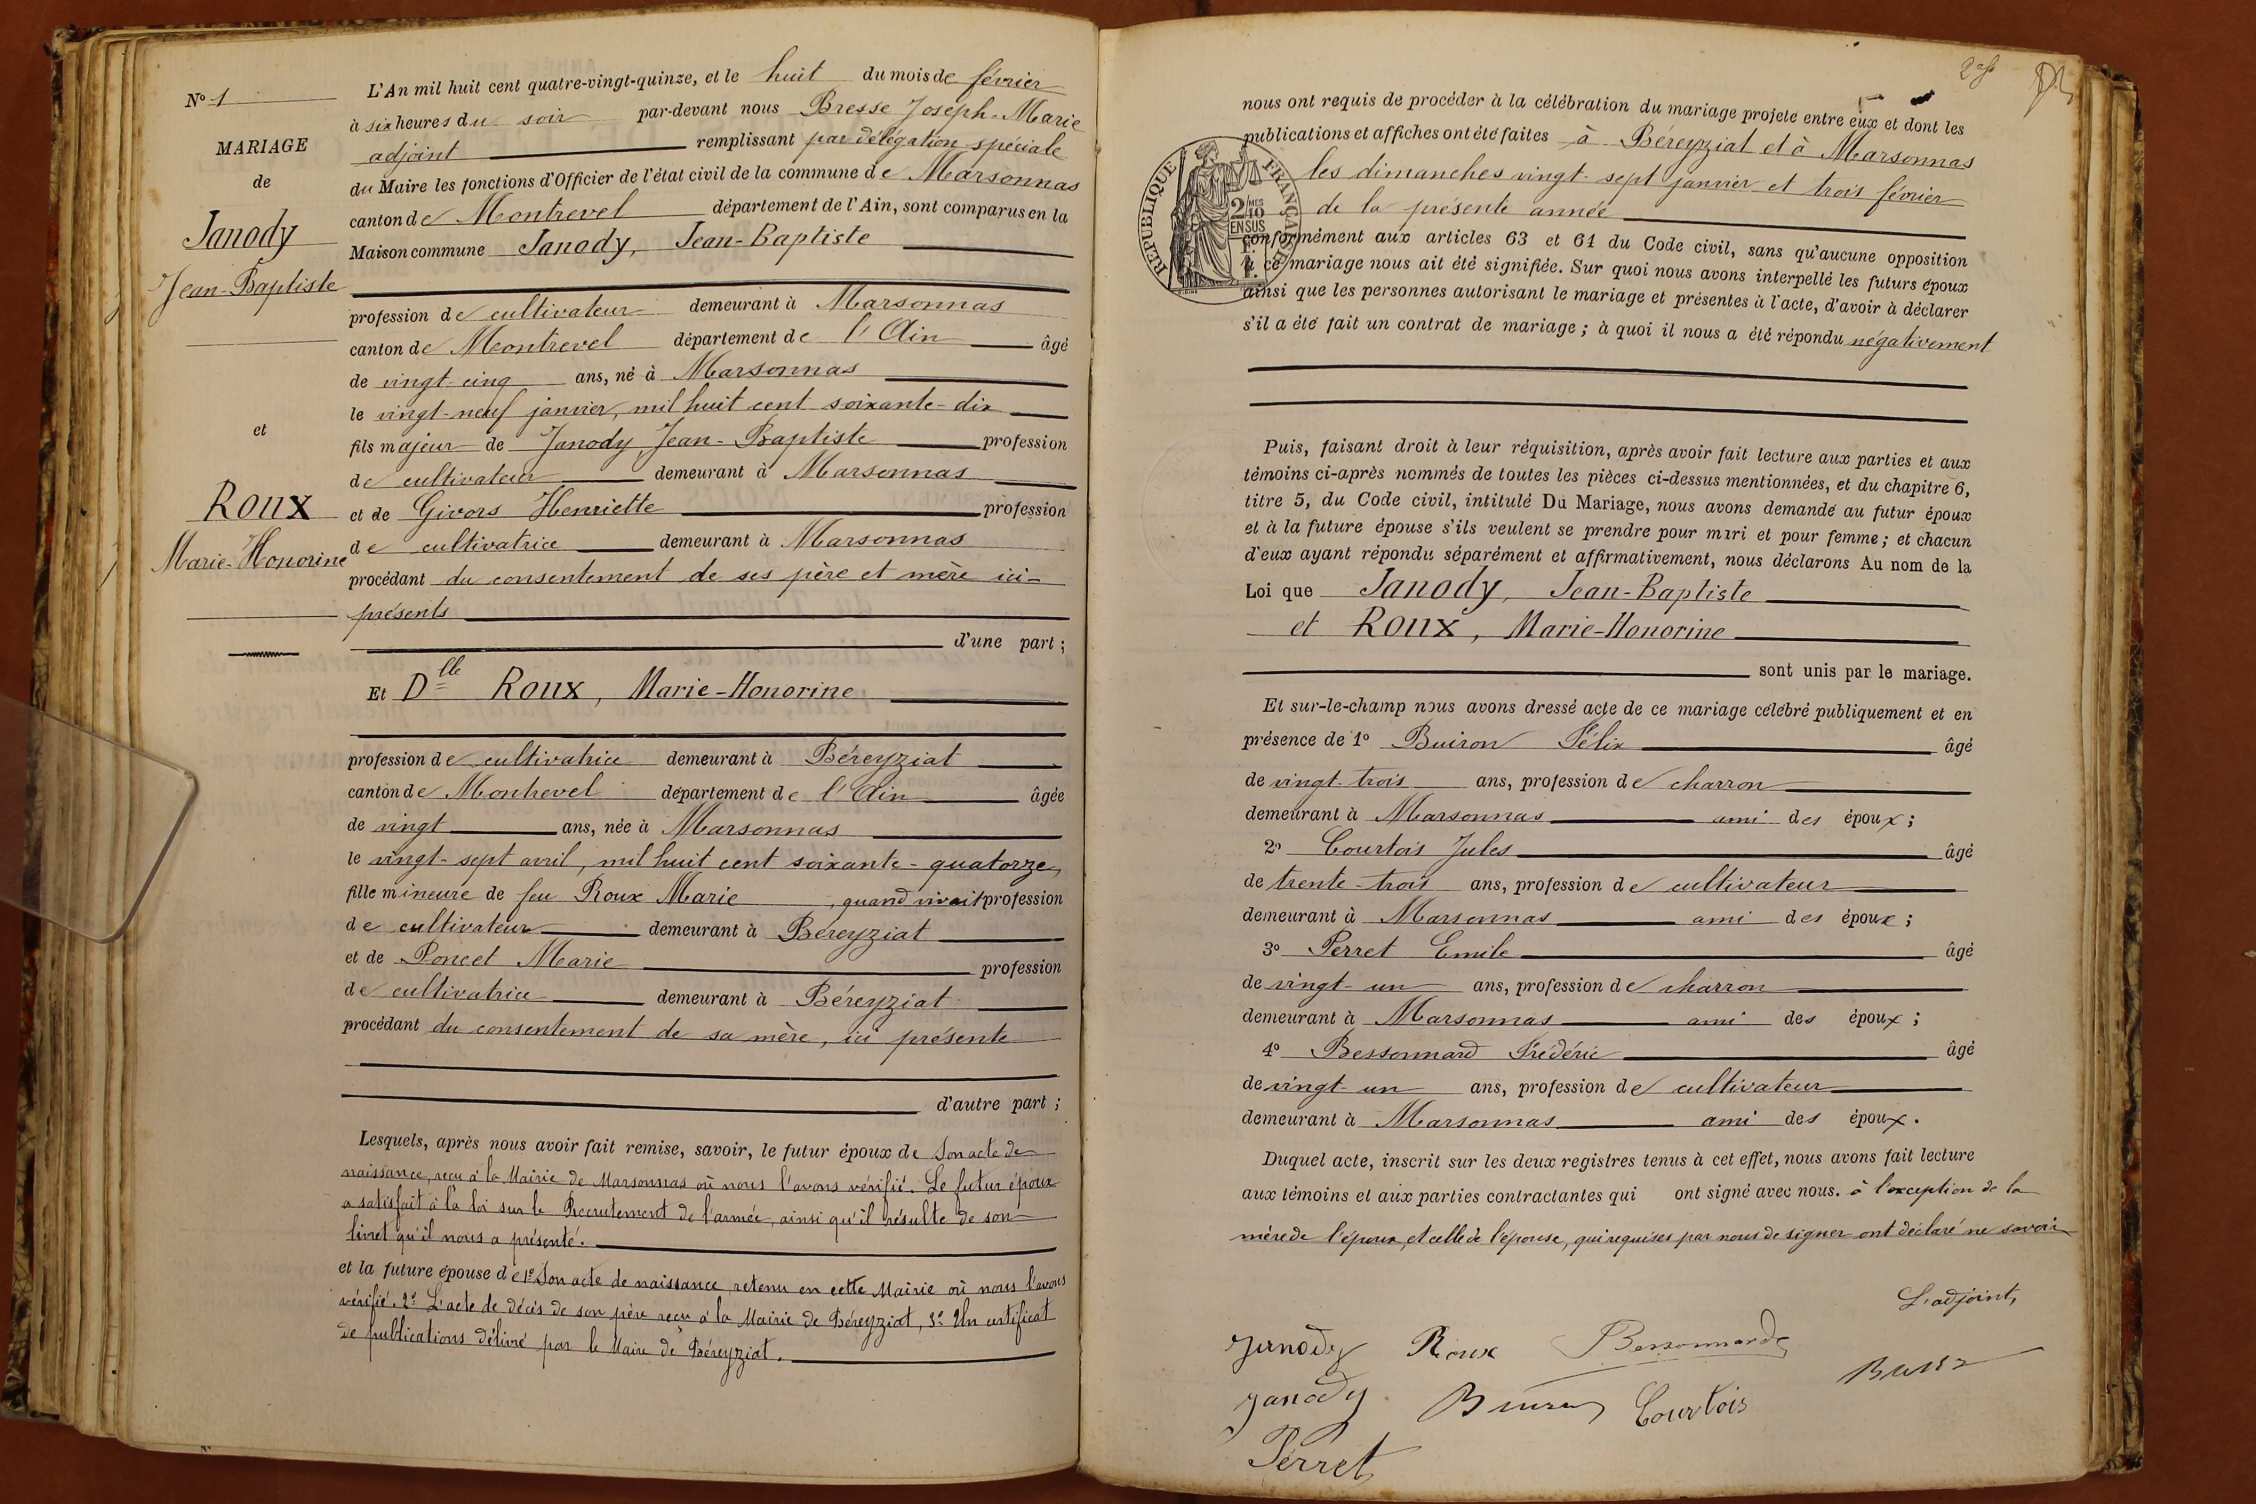 N° 1
MARIAGE
de
Janody
Jean-Baptiste
et
Roux
Marie-Honorine
L'An mil huit cent quatre-vingt-quinze, et le huit du mois de février
à six heures du soir par-devant nous Bresse Joseph-Marie
adjoint remplissant par délégation spéciale
du Maire les fonctions d'Officier de l'état civil de la commune de Marsonnas
canton de Montrevel département de l'Ain, sont comparus en la
Maison commune Janody, Jean-Baptiste
profession de cultivateur demeurant à Marsonnas
canton de Montrevel département de l'Ain âgé
de vingt-cinq ans, né à Marsonnas
le vingt-neuf janvier, mil huit cent soixante-dix
fils majeur de Janody Jean-Baptiste profession
de cultivateur demeurant à Marsonnas
et de Givors Henriette profession
de cultivatrice demeurant à Marsonnas
procédant du consentement de ses père et mère ici-
présents
d'une part ;
Et Dlle Roux, Marie-Honorine
profession de cultivatrice demeurant à Béreyziat
canton de Montrevel département de l'Ain âgée
de vingt ans, née à Marsonnas
le vingt-sept avril, mil huit cent soixante-quatorze,
fille mineure de feu Roux Marie, quand vivait profession
de cultivateur demeurant à Béreyziat
et de Poncet Marie profession
de cultivatrice demeurant à Béreyziat
procédant du consentement de sa mère, ici présente
d'autre part ;
Lesquels, après nous avoir fait remise, savoir, le futur époux de Son acte de
naissance, reçu à la Mairie de Marsonnas où nous l'avons vérifié. Le futur époux
a satisfait à la loi sur le Recrutement de l'armée, ainsi qu'il résulte de son
livret qu'il nous a présenté.
et la future épouse de 1° Son acte de naissance, retenu en cette Mairie où nous l'avons
vérifié. 2° L'acte de décès de son père reçu à la Mairie de Béreyziat, 3° Un certificat
de publications délivré par le Maire de Béreyziat.
2 
nous ont requis de procéder à la célébration du mariage projeté entre eux et dont les
publications et affiches ont été faites à Béreyziat et à Marsonnas
les dimanches vingt-sept janvier et trois février
de la présente année
RÉPUBLIQUE FRANÇAISE
2/10 MES
EN SUS
conformément aux articles 63 et 64 du Code civil, sans qu'aucune opposition
à ce mariage nous ait été signifiée. Sur quoi nous avons interpellé les futurs époux
ainsi que les personnes autorisant le mariage et présentes à l'acte, d'avoir à déclarer
s'il a été fait un contrat de mariage ; à quoi il nous a été répondu négativement
Puis, faisant droit à leur réquisition, après avoir fait lecture aux parties et aux
témoins ci-après nommés de toutes les pièces ci-dessus mentionnées, et du chapitre 6,
titre 5, du Code civil, intitulé Du Mariage, nous avons demandé au futur époux
et à la future épouse s'ils veulent se prendre pour mari et pour femme ; et chacun
d'eux ayant répondu séparément et affirmativement, nous déclarons Au nom de la
Loi que Janody, Jean-Baptiste
et Roux, Marie-Honorine
sont unis par le mariage.
Et sur-le-champ nous avons dressé acte de ce mariage célébré publiquement et en
présence de 1° Buiron Félix âgé
de vingt-trois ans, profession de charron
demeurant à Marsonnas ami des époux ;
2° Courtois Jules âgé
de trente-trois ans, profession de cultivateur
demeurant à Marsonnas ami des époux ;
3° Perret Emile âgé
de vingt-un ans, profession de charron
demeurant à Marsonnas ami des époux ;
4° Bessonnard Frédéric âgé
de vingt-un ans, profession de cultivateur
demeurant à Marsonnas ami des époux.
Duquel acte, inscrit sur les deux registres tenus à cet effet, nous avons fait lecture
aux témoins et aux parties contractantes qui ont signé avec nous. à l'exception de la
mère de l'époux, et celle de l'épouse, qui requises par nous de signer ont déclaré ne savoir
L'adjoint,
Janody Roux Bessonnard
Bresse
Janody Buiron Courtois
Perret